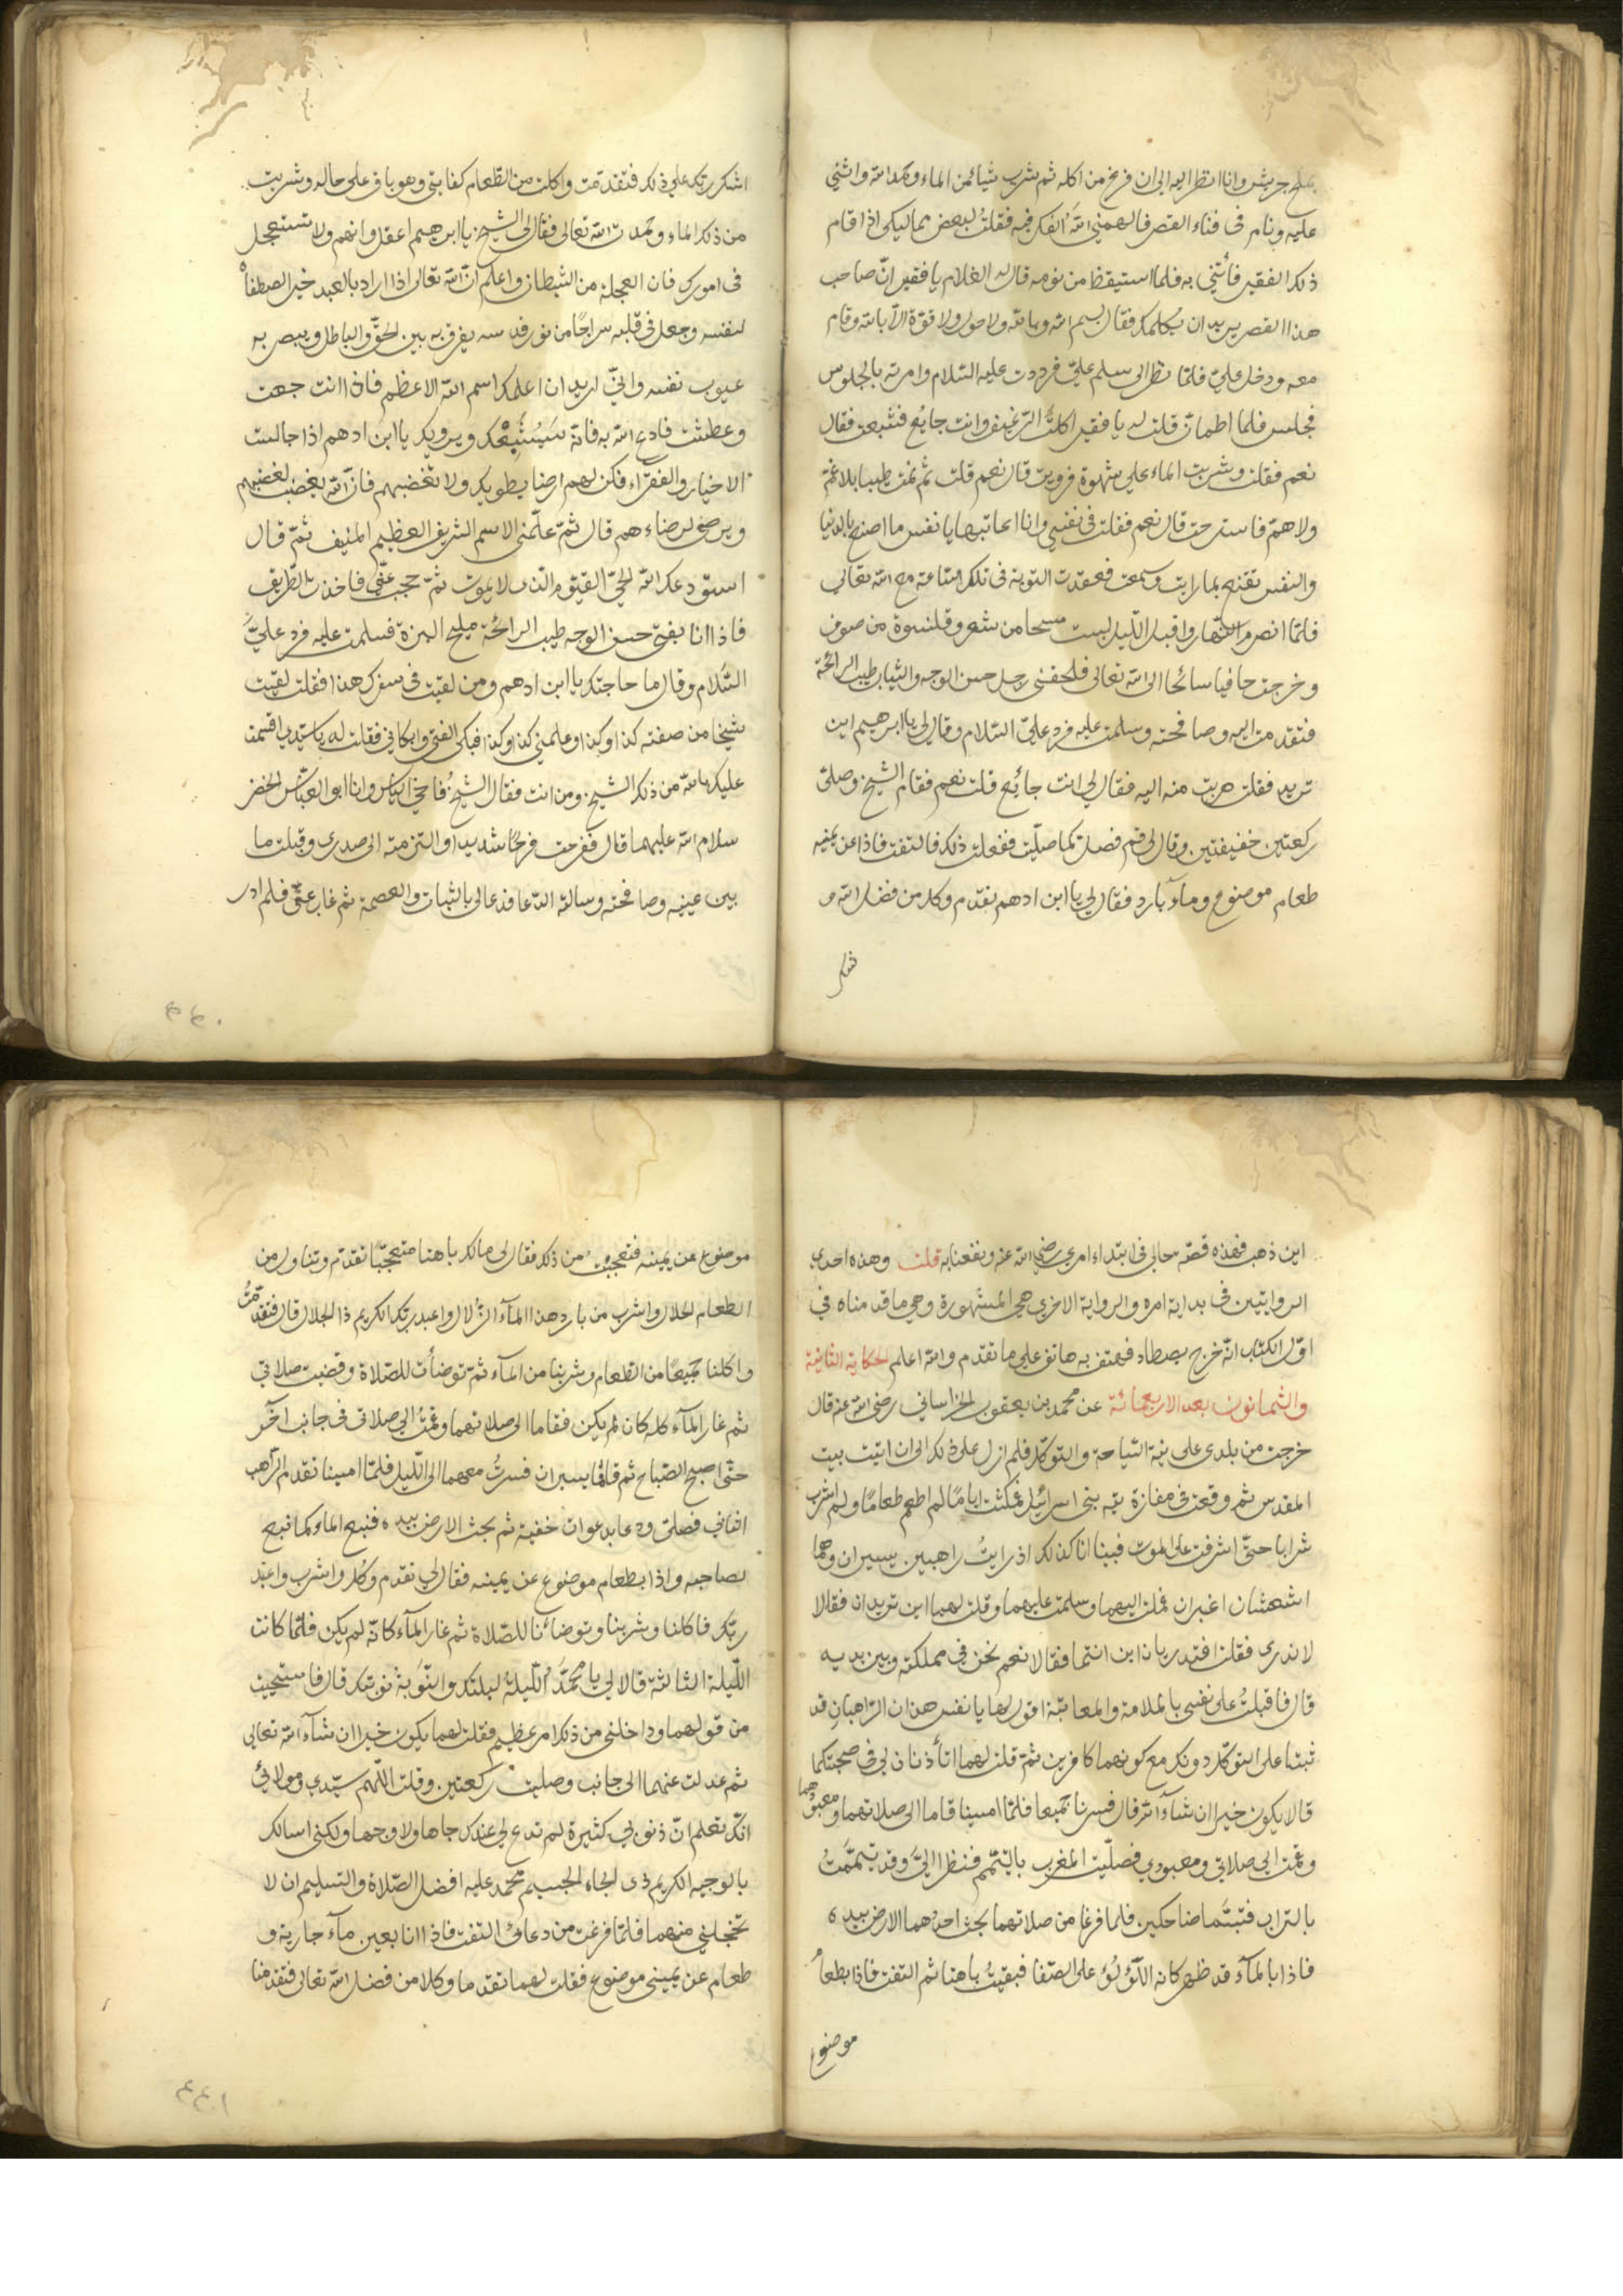 بملح جريش وانا انظر اليه الى ان فرغ من اكله ثم شرب شيأ من الماء وحمد الله واثنى
عليه ونام فى فناء القصر فالهمنى الله الفكر فيه فقلت لبعض مماليكى اذا قام
ذلك الفقير فأتنى به فلما استيقظ من نومه قال له الغلام يا فقير انّ صاحب
هذا القصر يريد ان يكلمك فقال بسم الله وبالله ولا حول ولا قوّة الّا بالله وقام
معه ودخل عليّ فلمّا نظر الى سلم عليّ فرددت عليه السّلام وامرته بالجلوس
فجلس فلما اطمأن قلت له يا فقير اكلت الرغيف وانت جايع فشبعت فقال
نعم فقلت وشربت الماء على شهوة فرويت قال نعم قلت ثم نمت طيبا بلا غم
ولا همّ فاسترحت قال نعم فقلت فى نفسى وانا اعاتبها يا نفس ما اصنع بالدنيا
والنفس تقنع بما رايت وسمعت فعقدت التوبة فى تلك الساعة مع الله تعالى
فلمّا انصرم النّهار واقبل اللّيل لبست مسحا من شعر وقلنسوة من صوف
وخرجت حافيا سائحا الى الله تعالى فلحقنى رجل حسن الوجه والثياب طيب الرائحة
فتقدمت اليه وصافحته وسلمت عليه فرد عليّ السّلام وقال لى يا ابرهيم اين
تريد فقلت هربت منه اليه فقال لى انت جائع قلت نعم فقام الشيخ وصلى
ركعتين خفيفتين وقال لى قم فصل كما صلّيت ففعلت ذلك فالتفت فاذا عن يمينه
طعام موضوع ومآء بارد فقال لى يا ابن ادهم تقدم وكل من فضل الله و
شكر
اشكر ربك على ذلك فتقدمت واكلت من الطعام كفايتى وهو باق على حاله وشربت
من ذلك الماء وحمدت الله تعالى فقال لى الشيخ يا ابرهيم اعقل وافهم ولا تستعجل
فى امورك فان العجلة من الشيطان واعلم انّ الله تعالى اذا اراد بالعبد خيرا اصطفاه
لنفسه وجعل فى قلبه سراجًا من نور قدسه يفرق به بين الحقّ والباطل ويبصر به
عيوب نفسه وانيّ اريد ان اعلمك اسم الله الاعظم فاذا انت جعت
وعطشت فادع الله به فانه سيشبعك ويرويك يا ابن ادهم اذا جالست
الاخيار والفقرآء فكن لهم ارضا يطويك ولا تغضبهم فانّ الله يغضب لغضبهم
ويرضى لرضاءهم قال ثمّ علّمنى الاسم الشريف العظيم المنيف ثمّ قال
استودعك الله الحيّ القيّوم الّذى لا يموت ثمّ حجب عنّى فاخذت الطّريق
فاذا انا بفتى حسن الوجه طيب الرائحة مليح البزة فسلمت عليه فرد عليّ
السّلام وقال ما حاجتك يا ابن ادهم ومن لقيت فى سفرك هذا فقلت لقيت
شيخا من صفته كذا وكذا وعلمنى كذا وكذا فبكى الفتى وابكانى فقلت له يا سيّدى اقسمت
عليك بالله من ذلك الشيخ ومن انت فقال الشيخ فاخى الياس وانا ابو العبّاس الخضر
سلام الله عليهما قال ففرحت فرحًا شديدا والتزمته الى صدرى وقبلت ما
بين عينيه وصافحته وسالته الدّعا فدعا لى بالثبات والعصمة ثم غاب عنّى فلم ادر
٤٤٠
اين ذهب فهذه قصّة حالى فى ابتداء امرى رضى الله عنه ونفعنا به قلت وهذه احدى
الروايتين فى بداية امره والرواية الاخرى هى المشهورة وهى ما قدمناه فى
اوّل الكتاب انّه خرج يصطاد فهتف به هاتف على ما تقدم والله اعلم الحكاية الثانية
والثمانون بعد الاربعمائة عن محمد بن يعقوب الخراسانى رضى الله عنه قال
خرجت من بلدى على نية السّياحة والتوكّل فلم ازل على ذلك الى ان اتيت بيت
المقدس ثم وقعت فى مفازة تيه بنى اسرائيل فمكثت ايامًا لم اطعم طعامًا ولم اشرب
شرابا حتّى اشرفت على الموت فبينا انا كذلك اذ رايت راهبين يسيران وهما
اشعثان اغبران فملت اليهما وسلمت عليهما وقلت لهما اين تريدان فقالا
لا ندرى فقلت افتدريان اين انتما فقالا نعم نحن فى مملكته وبين يديه
قال فاقبلتُ على نفسى بالملامة والمعاتبة اقول لها يا نفس هذان الرّاهبان قد
ثبتا على التوكّل دونك مع كونهما كافرين ثمّ قلت لهما اتأذنان لى فى صحبتكما
قالا يكون خيرا ان شآء الله قال فسرنا جميعا فلمّا امسينا قاما الى صلاتهما ومعبودهما
وقمت الى صلاتى ومعبودي فصلّيت المغرب بالتيّمم فنظرا اليّ وقد تيمّمتُ
بالتراب فتبسّما ضاحكين فلما فرغا من صلاتهما بحث احدهما الارض بيده
فاذا بالمآء قد ظهر كانه اللّؤلؤ على الصّفا فبقيتُ باهتا ثم التفت فاذا بطعام
موضوع
موضوع عن يمينه فتعجبت من ذلك فقال لى مالك باهتا متعجّبًا تقدم وتناول من
الطعام الحلال واشرب من بارد هذا المآء الزّلال واعبد ربّك الكريم ذا الجلال قال فتقدّمتُ
واكلنا جميعًا من الطعام وشربنا من المآء ثمّ توضأت للصّلاة وقضيت صلاتى
ثم غار المآء كله كان لم يكن فقاما الى صلاتهما وقمتُ الى صلاتى فى جانب آخر
حتّى اصبح الصّباح ثم قاما يسيران فسرتُ معهما الى اللّيل فلمّا امسينا تقدم الرّاهب
الثانى فصلى ودعا بدعوات خفية ثم بحث الارض بيده فنبع الماء كما نبع
لصاحبه واذا بطعام موضوع عن يمينه فقال لى تقدم وكل واشرب واعبد
ربّك فاكلنا وشربنا وتوضأنا للصّلاة ثم غار المآء كانّه لم يكن فلمّا كانت
اللّيلة الثالثة قالا لى يا محمّد اللّيلة ليلتك والنّوبة نوبتك قال فاستحييت
من قولهما وداخلنى من ذلك امر عظيم فقلت لهما يكون خيرا ان شآء الله تعالى
ثم عدلت عنهما الى جانب وصليت ركعتين وقلت اللّهم سيّدي ومولائى
انّك تعلم انّ ذنوبى كثيرة لم تدع لى عندك جاها ولا وجها ولكنى اسالك
بالوجيه الكريم ذى الجاه الجسيم محمد عليه افضل الصّلاة والتسليم ان لا
تخجلنى منهما فلمّا فرغت من دعائى التفت فاذا انا بعين مآء جارية و
طعام عن يمينى موضوع فقلت لهما تقدما وكلا من فضل الله تعالى فتقدمنا
٤٤١